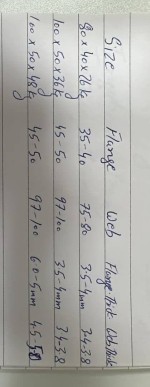 Size Flange Web Flange Thick Web Thick
80 x 40 x 26 kg 35-40 75-80 3.5-4mm 3.4-3.8
100 x 50 x 36 kg 45-50 97-100 3.5-4mm 3.4-3.8
100 x 50 x 48 kg 45-50 97-100 6.0-5mm 4.5